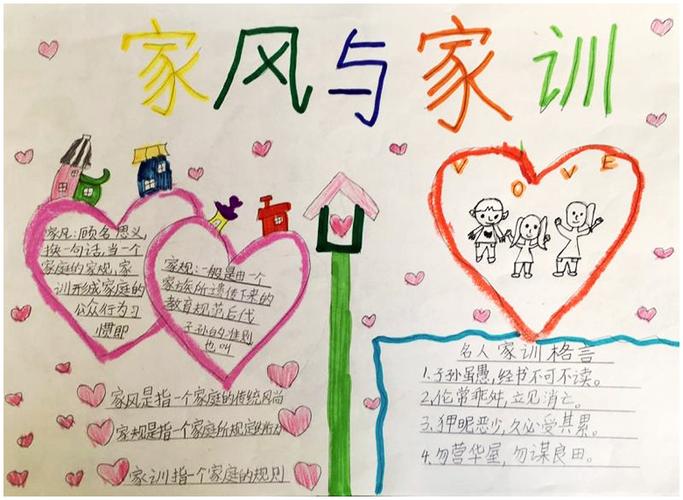 家风与家训
家风:顾名思义,
换一句话,当一个
家庭的家规,家
训形成家庭的
公众行为习
惯即
家规:一般是由一个
家族所遗传下来的
教育规范后代
子孙的准则
也叫
家风是指一个家庭的传统风尚
家规是指一个家庭所规定的
家训指一个家庭的规则
V O V E
名人家训格言
1.子孙虽愚,经书不可不读。
2.伦常乖舛,立见消亡。
3.狎昵恶少,久必受其累。
4.勿营华屋,勿谋良田。